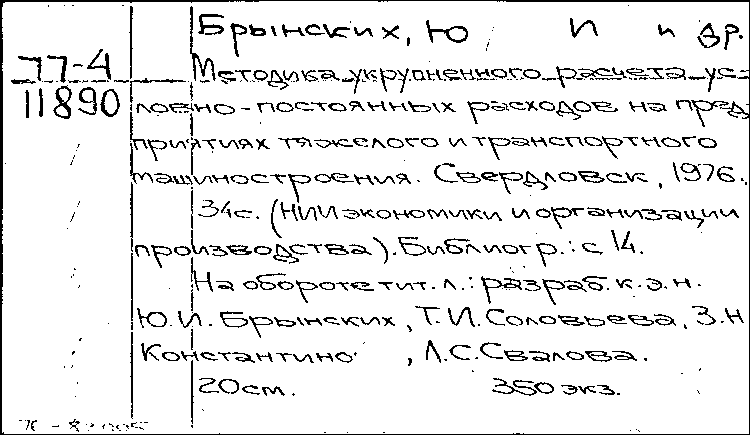 Брынских, Ю И и др.
77-4
Методика укрупненного расчета ус-
11890
ловно-постоянных расходов на пред
приятиях тяжелого и транспортного
машиностроения. Свердловск, 1976.
34с. (НИИ экономики и организации
производства). Библиогр.: с 14.
На обороте тит. л.: разраб. к.э.н.
Ю.И. Брынских, Т.И. Соловьева, З.Н
Константино , Л.С. Свалова.
20см. 350 экз.